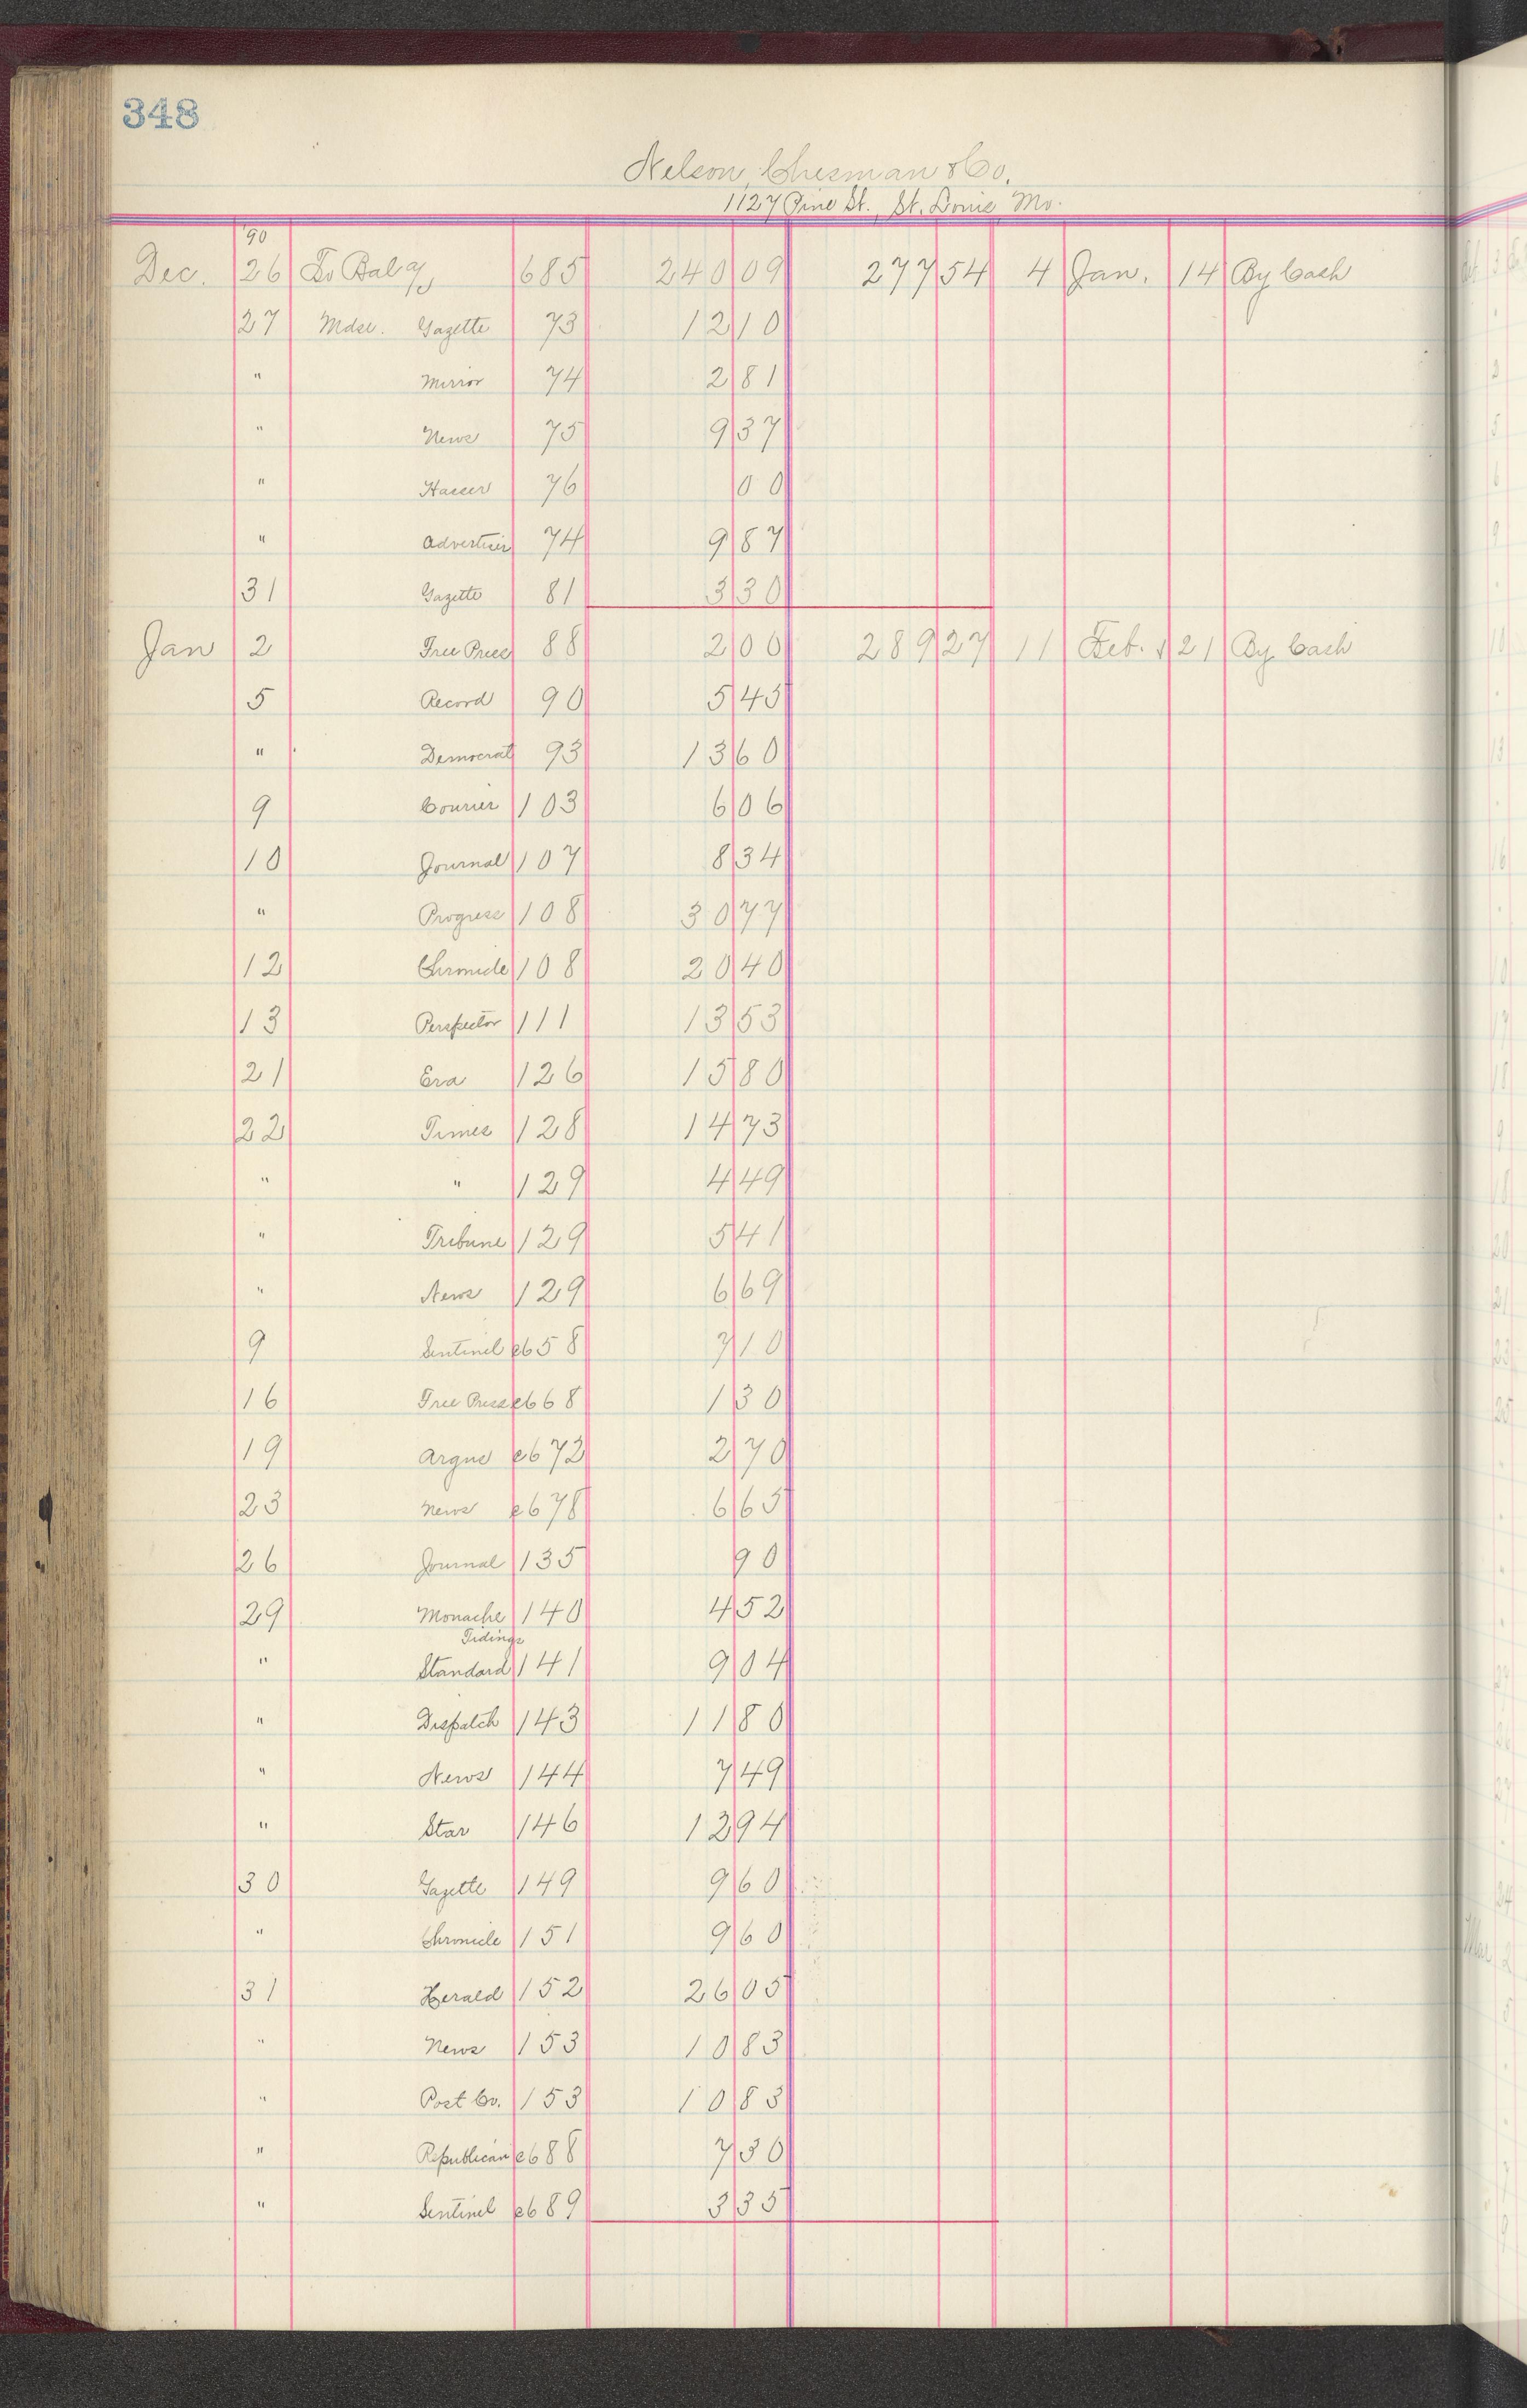 348
Nelson, Chesman & Co.
1127 Pine St., St. Louis Mo.
'90
Dec. 26 To Bal 685 240 09 277 54 4 Jan. 14 By Cash
27 Mdse. Gazette 73 12 10
" Mirror 74 2 81
" News 75 9 37
" 76 00
" Advertiser 74 9 87
31 Gazette 81 3 30
Jan 2 Free Press 88 2 00 289 27 11 Feb. 21 By Cash
5 Record 90 5 45
" Democrat 93 13 60
9 Courier 103 6 06
10 Journal 107 8 34
" Progress 108 30 77
12 Chronicle 108 20 40
13 Perspector 111 13 53
21 Era 126 15 80
22 Times 128 14 73
" " 129 4 49
" Tribune 129 5 41
" News 129 6 69
9 Sentinel c658 7 10
16 Free Press c668 1 30
19 Argus c672 2 70
23 News c678 6 65
26 Journal 135 90
29 Monache 140 4 52
Tidings
" Standard 141 9 04
" Dispatch 143 11 80
" News 144 7 49
" Star 146 12 94
30 Gazette 149 9 60
" Chronicle 151 9 60
31 Herald 152 26 05
" News 153 10 83
" Post Co. 153 10 83
" Republican c688 7 30
" Sentinel c689 3 35